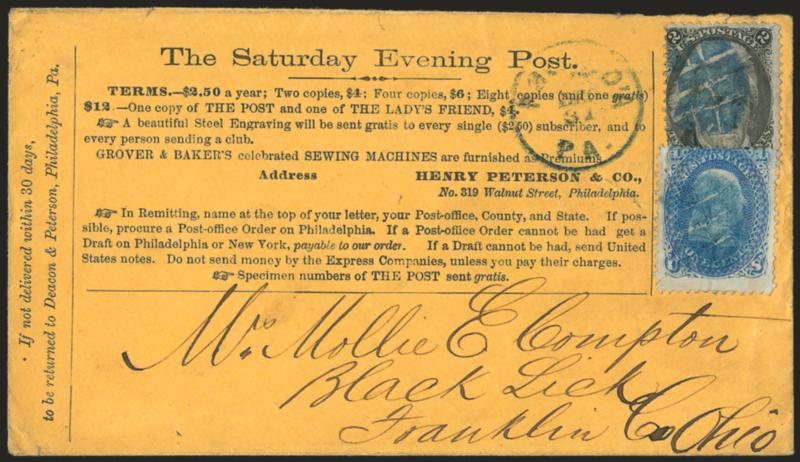 The Saturday Evening Post.
TERMS.—$2.50 a year; Two copies, $4; Four copies, $6; Eight copies (and one gratis)
$12.—One copy of THE POST and one of THE LADY'S FRIEND, $4.
☞ A beautiful Steel Engraving will be sent gratis to every single ($2.50) subscriber, and to
every person sending a club.
GROVER & BAKER'S celebrated SEWING MACHINES are furnished as Premiums.
Address HENRY PETERSON & CO.,
No. 319 Walnut Street, Philadelphia.
☞ In Remitting, name at the top of your letter, your Post-office, County, and State. If pos-
sible, procure a Post-office Order on Philadelphia. If a Post-office Order cannot be had get a
Draft on Philadelphia or New York, payable to our order. If a Draft cannot be had, send United
States notes. Do not send money by the Express Companies, unless you pay their charges.
☞ Specimen numbers of THE POST sent gratis.
If not delivered within 30 days,
to be returned to Deacon & Peterson, Philadelphia, Pa.
PA.
2
U.S. POSTAGE
1 1
U.S. POSTAGE
Mrs Mollie E Compton
Black Lick
Franklin Co Ohio